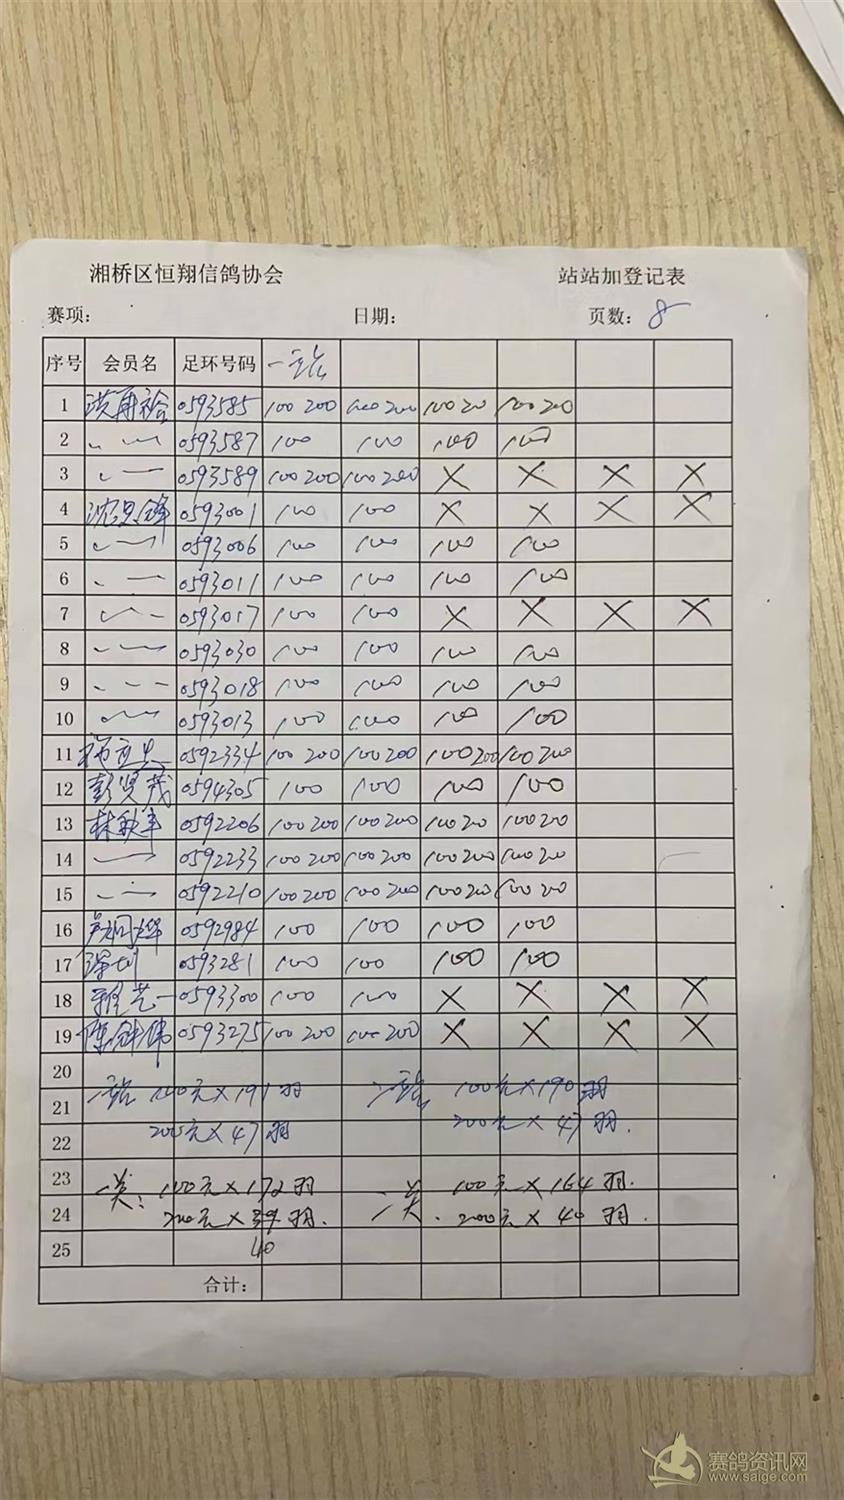 湘桥区恒翔信鸽协会 站站加登记表
赛项: 日期: 页数: 8
序号 会员名 足环号码 一站
1 洪再裕 0593585 100 200 100 200 100 20 100 20
2 〃 0593587 100 100 100 100
3 〃 0593589 100 200 100 200 X X X X
4 0593001 100 100 X X X X
5 〃 0593006 100 100 100 100
6 〃 0593011 100 100 100 100
7 〃 0593017 100 100 X X X X
8 〃 0593030 100 100 100 100
9 〃 0593018 100 100 100 100
10 〃 0593013 100 100 100 100
11 0592334 100 200 100 200 100 200 100 200
12 彭贤茂 0594305 100 100 100 100
13 林秋丰 0592206 100 200 100 200 100 20 100 20
14 〃 0592233 100 200 100 200 100 200 100 20
15 〃 0592210 100 200 100 200 100 20 100 20
16 0592984 100 100 100 100
17 0593281 100 100 100 100
18 0593300 100 100 X X X X
19 0593275 100 200 100 200 X X X X
20
21 一站 100元×191羽 二站 100元×190羽
22 200元×47羽 200元×47羽.
23 一关: 100元×172羽 二关. 100元×164羽.
24 200元×39羽. 200元×40羽.
25 40
合计:
赛鸽资讯网
www.saige.com